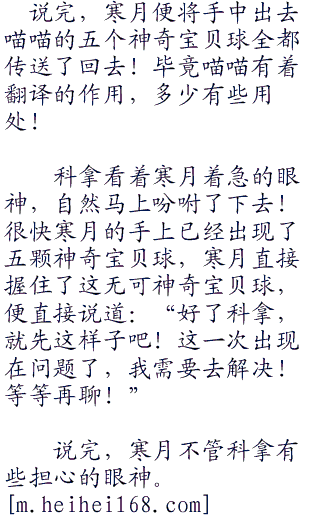 说完，寒月便将手中出去
喵喵的五个神奇宝贝球全都
传送了回去！毕竟喵喵有着
翻译的作用，多少有些用
处！
科拿看着寒月着急的眼
神，自然马上吩咐了下去！
很快寒月的手上已经出现了
五颗神奇宝贝球，寒月直接
握住了这无可神奇宝贝球，
便直接说道：“好了科拿，
就先这样子吧！这一次出现
在问题了，我需要去解决！
等等再聊！”
说完，寒月不管科拿有
些担心的眼神。
[m.heihei168.com]